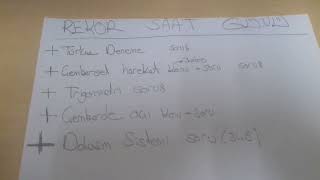 REKOR SAAT GÜNÜ
+ Türkçe Deneme soru8
+ Çembersel hareket Konu + soru soru8
+ Trigonometri soru8
+ Çemberde açı Konu + Soru
+ Dolaşım Sistemi soru (3...8)